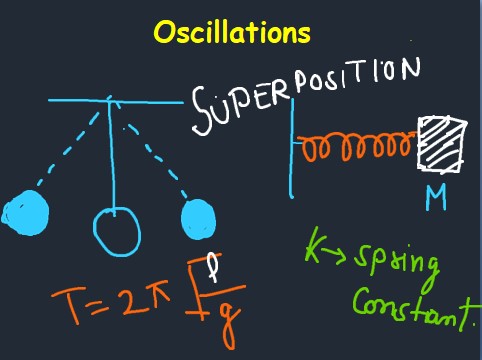 Oscillations
SUPERPOSITION
M
T = 2π √l/g
K → spring
constant.